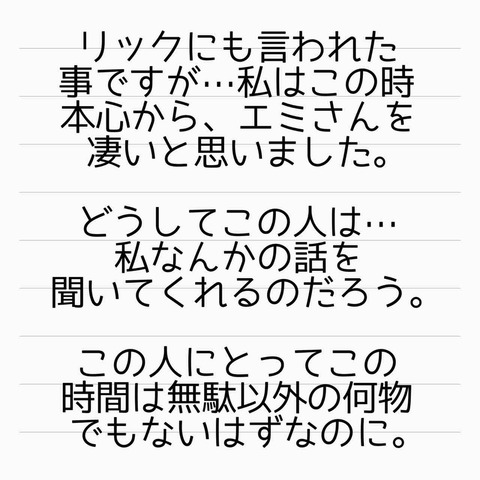 リックにも言われた
事ですが…私はこの時
本心から、エミさんを
凄いと思いました。
どうしてこの人は…
私なんかの話を
聞いてくれるのだろう。
この人にとってこの
時間は無駄以外の何物
でもないはずなのに。